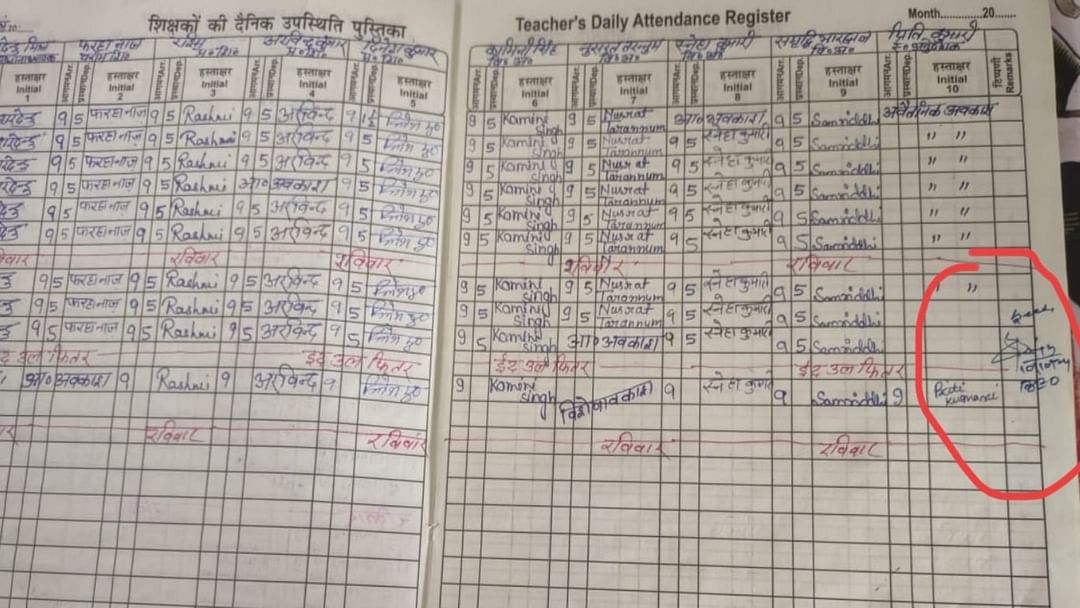 शिक्षकों की दैनिक उपस्थिति पुस्तिका
Teacher's Daily Attendance Register Month............20......
फरहा नाज रश्मि अरविन्द कुमार दिनेश कुमार कामिनी सिंह नुसरत तरन्नुम स्नेहा कुमारी प्रिति कुमारी
हस्ताक्षर Initial 1 आगमनArr. प्रस्थानDep. हस्ताक्षर Initial 2 आगमनArr. प्रस्थानDep. हस्ताक्षर Initial 3 आगमनArr. प्रस्थानDep. हस्ताक्षर Initial 4 आगमनArr. प्रस्थानDep. हस्ताक्षर Initial 5
आगमनArr. प्रस्थानDep. हस्ताक्षर Initial 6 आगमनArr. प्रस्थानDep. हस्ताक्षर Initial 7 आगमनArr. प्रस्थानDep. हस्ताक्षर Initial 8 आगमनArr. प्रस्थानDep. हस्ताक्षर Initial 9 आगमनArr. प्रस्थानDep. हस्ताक्षर Initial 10 टिप्पणी Remarks
9 5 फरहा नाज 9 5 Rashmi 9 5 अरविन्द 9 5 Kamini Singh 9 5 Nusrat Tarannum आ० अवकाश 9 5 Samriddhi अवैतनिक अवकाश
9 5 फरहा नाज 9 5 Rashmi 9 5 अरविन्द 9 5 9 5 Kamini Singh 9 5 Nusrat Tarannum 9 5 स्नेहा कुमारी 9 5 Samriddhi " "
9 5 फरहा नाज 9 5 Rashmi 9 5 अरविन्द 9 5 9 5 Kamini Singh 9 5 Nusrat Tarannum 9 5 स्नेहा कुमारी 9 5 Samriddhi " "
9 5 फरहा नाज 9 5 Rashmi आ० अवकाश 9 5 9 5 Kamini Singh 9 5 Nusrat Tarannum 9 5 स्नेहा कुमारी 9 5 Samriddhi " "
9 5 फरहा नाज 9 5 Rashmi 9 5 अरविन्द 9 5 9 5 Kamini Singh 9 5 Nusrat Tarannum 9 5 स्नेहा कुमारी 9 5 Samriddhi " "
9 5 फरहा नाज 9 5 Rashmi 9 5 अरविन्द 9 5 9 5 Kamini Singh 9 5 Nusrat Tarannum 9 5 स्नेहा कुमारी 9 5 Samriddhi " "
रविवार रविवार रविवार रविवार
9 5 फरहा नाज 9 5 Rashmi 9 5 अरविन्द 9 5 9 5 Kamini Singh 9 5 Nusrat Tarannum 9 5 स्नेहा कुमारी 9 5 Samriddhi "
9 5 फरहा नाज 9 5 Rashmi 9 5 अरविन्द 9 5 9 5 Kamini Singh 9 5 Nusrat Tarannum 9 5 स्नेहा कुमारी 9 5 Samriddhi
9 5 फरहा नाज 9 5 Rashmi 9 5 अरविन्द 9 5 9 5 Kamini Singh आ० अवकाश 9 5 स्नेहा कुमारी 9 5 Samriddhi
उल फितर ईद उल फितर ईद उल फितर ईद उल फितर
आ० अवकाश 9 Rashmi 9 अरविन्द 9 9 Kamini Singh विशेषावकाश 9 स्नेहा कुमारी 9 Samriddhi 9
रविवार रविवार रविवार रविवार